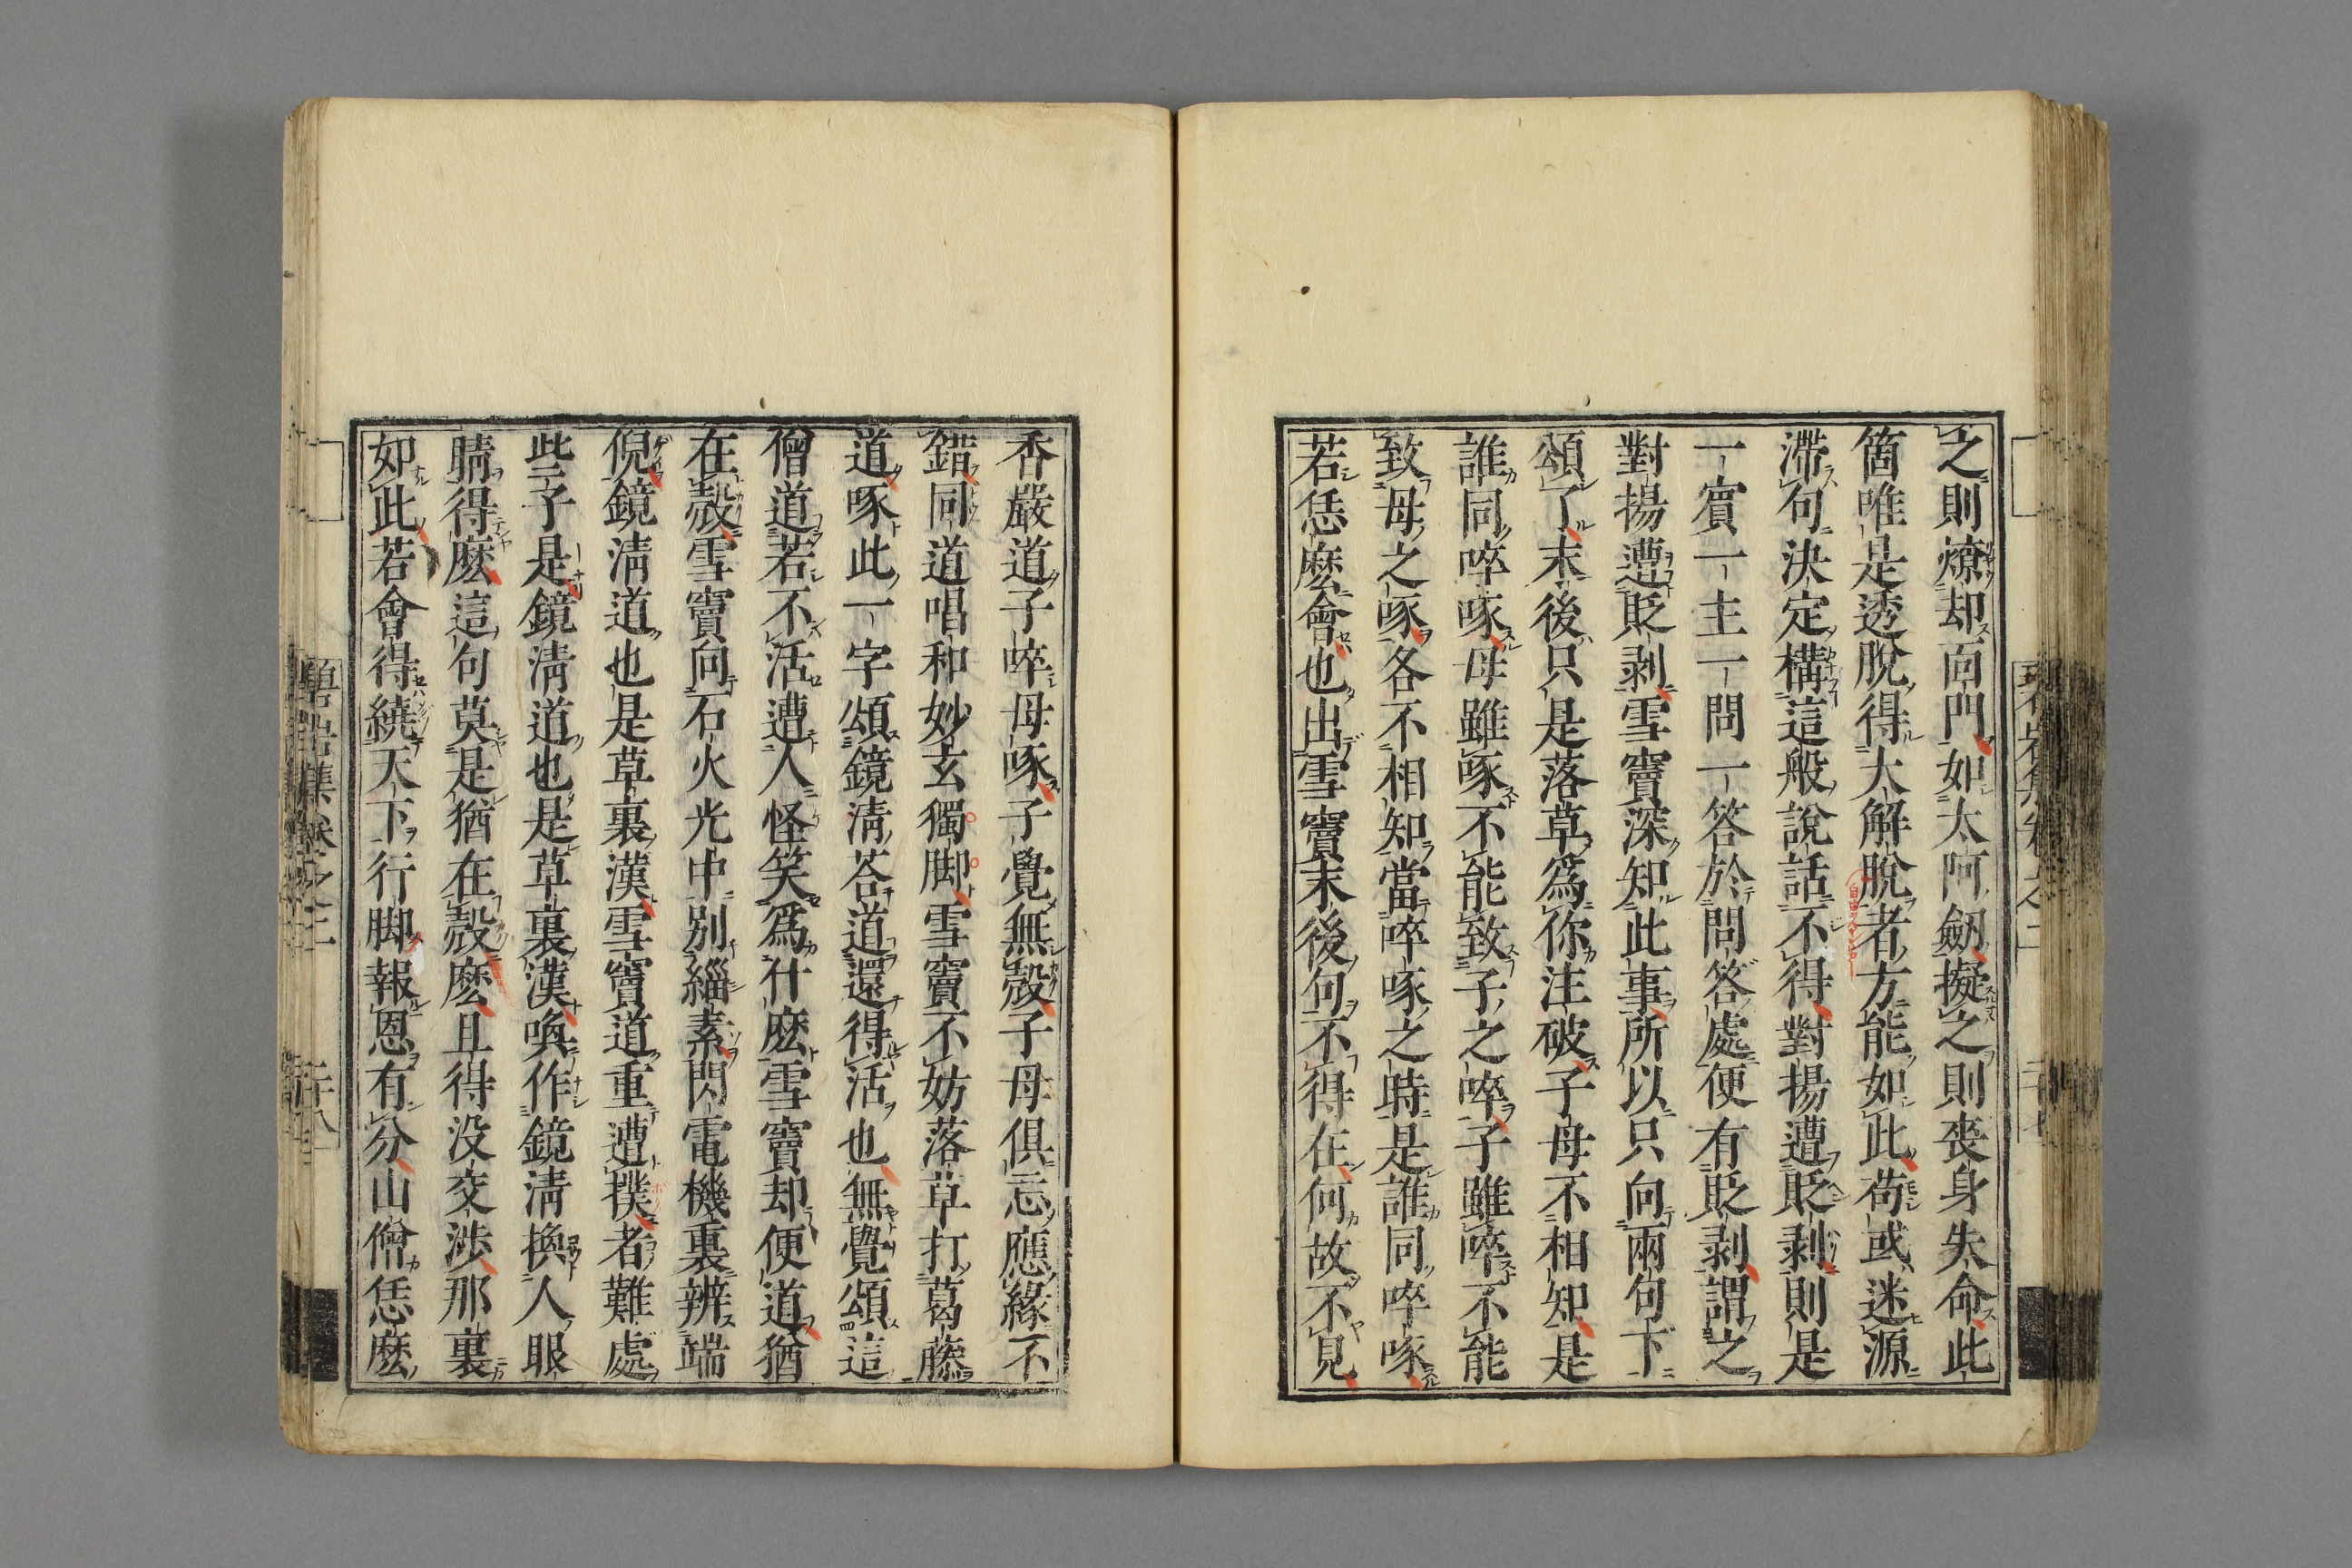 之則燎却面門如太阿劒擬之則喪身失命此
箇唯是透脫得大解脫者方能如此苟或迷源
滯句決定構這般說話不得對揚遭貶剥則是
一賓一主一問一答於問答處便有貶剥謂之
對揚遭貶剥雪竇深知此事所以只向兩句下
頌了末後只是落草爲你注破子母不相知是
誰同啐啄母雖啄不能致子之啐子雖啐不能
致母之啄各不相知當啐啄之時是誰同啐啄
若恁麽會也出雪竇末後句不得在何故不見
香嚴道子啐母啄子覺無殼子母俱忘應緣不
錯同道唱和妙玄獨脚雪竇不妨落草打葛藤
道啄此一字頌鏡淸荅道還得活也無覺頌這
僧道若不活遭人怪笑爲什麽雪竇却便道猶
在殼雪竇向石火光中別緇素閃電機裏辨端
倪鏡淸道也是草裏漢雪竇道重遭撲者難處
些子是鏡淸道也是草裏漢喚作鏡淸換人眼
睛得麽這句莫是猶在殼麽且得没交渉那裏
如此若會得繞天下行脚報恩有分山僧恁麽
碧岩集卷之二
二十八